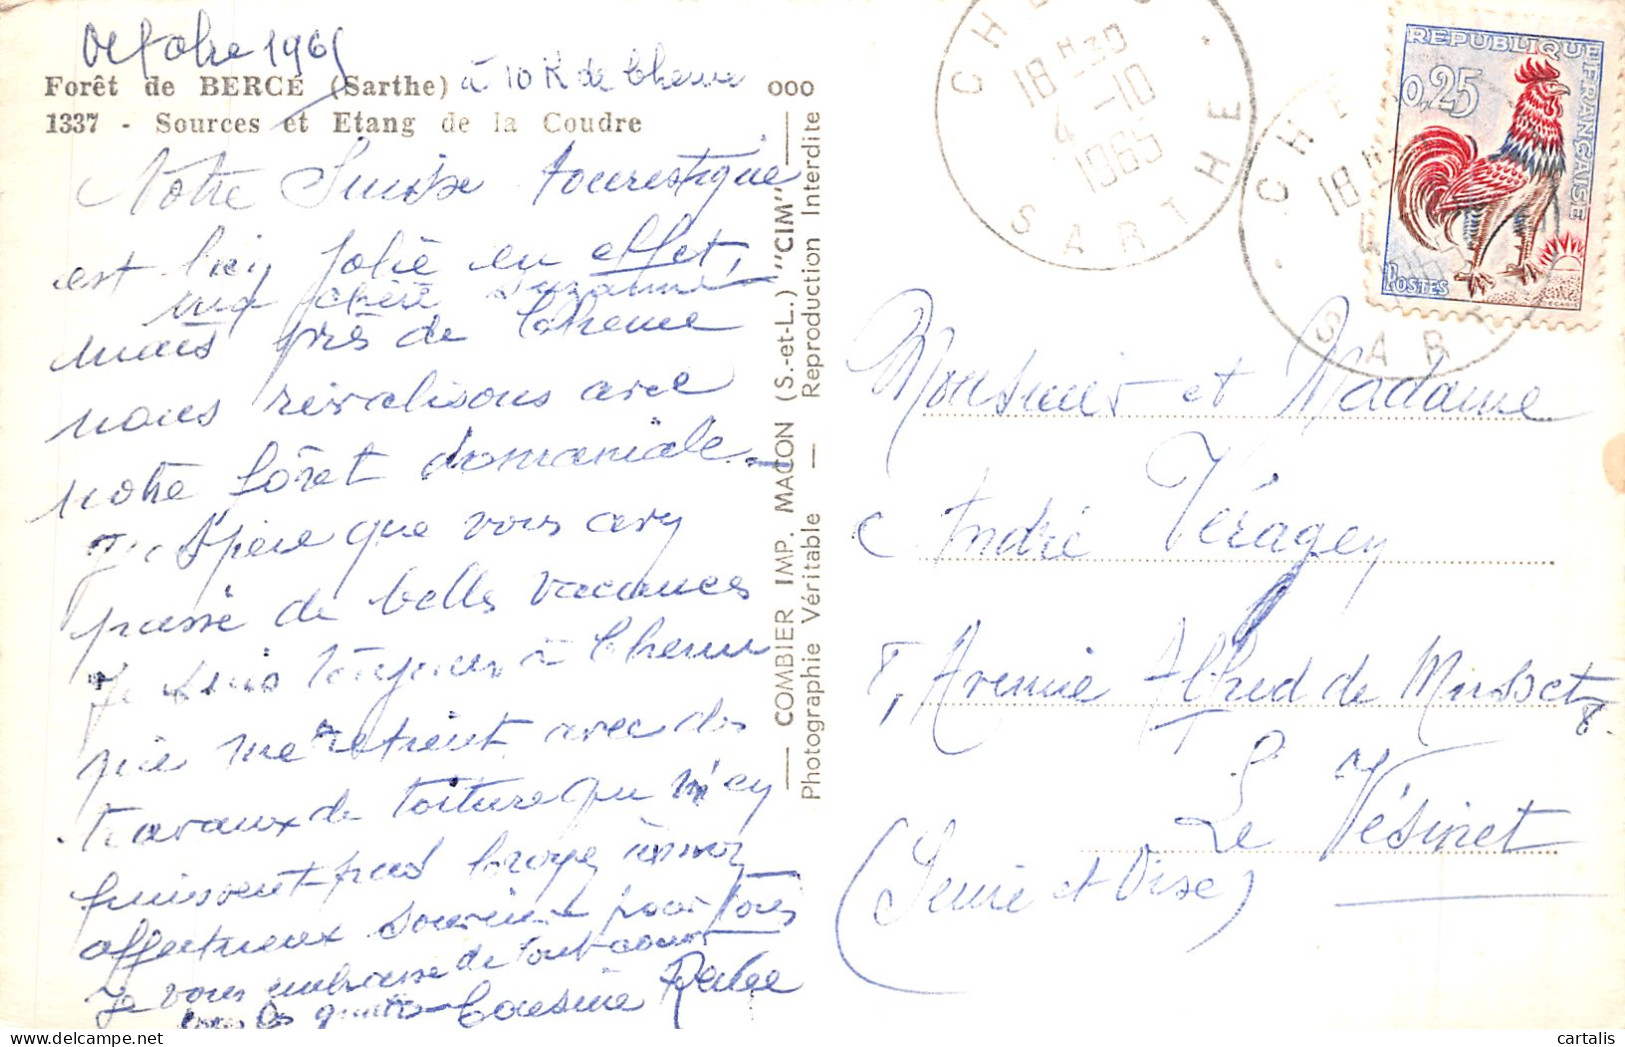 Octobre 1965
Forêt de BERCÉ (Sarthe) à 10 K de Chenu
1337 - Sources et Etang de la Coudre
Notre Suisse touristique
est bien jolie en effet,
ma chère Suzanne
mais près de Chenu
nous rivalisons avec
notre forêt domaniale.
J'espère que vous avez
passé de belles vacances
Je suis toujours à Chenu
qui me retient avec des
travaux de toiture qui n'en
finissent pas
affectueux souvenir pour tous
Je vous embrasse de tout cœur
tous les quatre Cousine Renée
COMBIER IMP. MACON (S.-et-L.) "CIM"
Photographie Véritable — Reproduction Interdite
ooo
CHENU
18 H30
4 -10
1965
SARTHE
CHENU
18 H30
SARTHE
REPUBLIQUE FRANÇAISE
0,25
POSTES
Monsieur et Madame
André Véragen
8, Avenue Alfred de Musset 8.
Le Vésinet
(Seine et Oise)
cartalis
delcampe.net